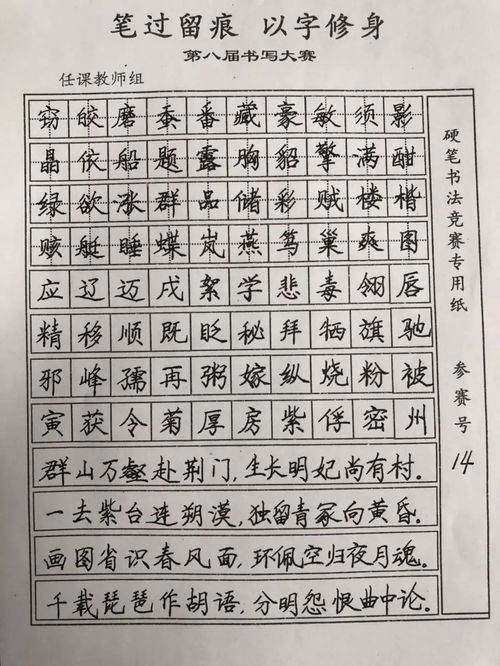 笔过留痕 以字修身
第八届书写大赛
任课教师组
窃皎磨蚕番藏豪敏须影
晶依船题露胸貂擎满酣
绿欲涨群品储彩贼楼楷
赅艇睡蝶岚燕笃巢爽图
应辽迈戌絮学悲毒翎唇
精移顺既眨秘拜牺旗驰
邪峰孺再粥嫁纵烧粉被
寅获令菊厚房紫俘密州
群山万壑赴荆门,生长明妃尚有村。
一去紫台连朔漠,独留青冢向黄昏。
画图省识春风面,环佩空归夜月魂。
千载琵琶作胡语,分明怨恨曲中论。
硬笔书法竞赛专用纸 参赛号 14